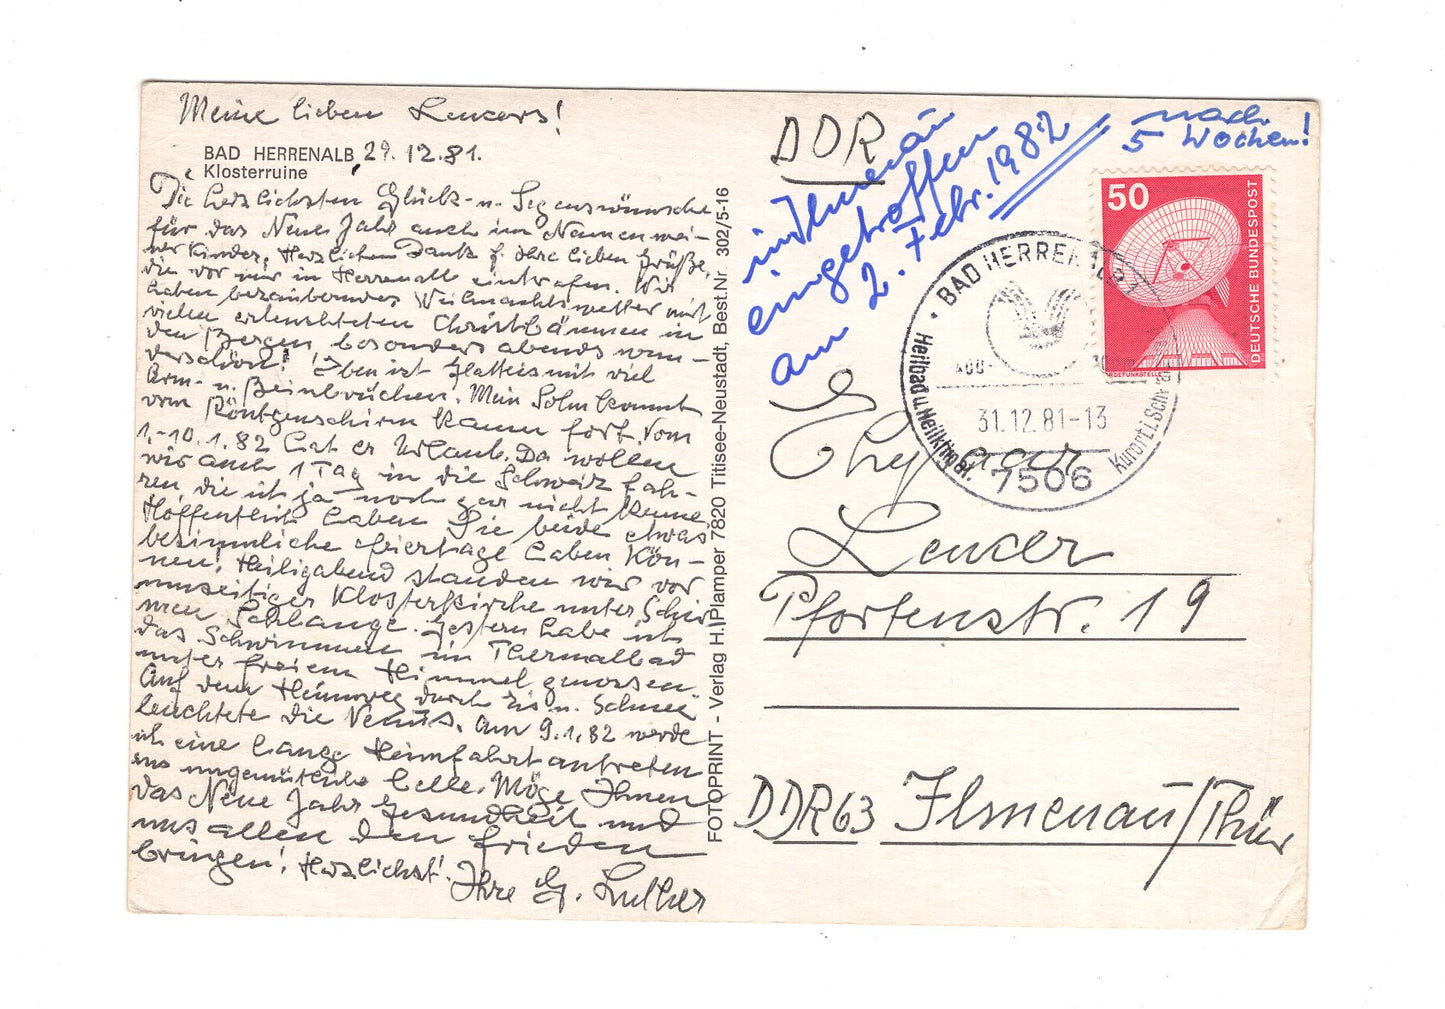 Meine lieben Lencers!
BAD HERRENALB 29.12.81.
Klosterruine
Die herzlichsten Glück- u. Segenswünsche
für das Neue Jahr auch im Namen mei-
ner Kinder. Herzlichen Dank f. Ihre lieben Grüße,
die vor mir in Herrenalb eintrafen. Wir
haben bezauberndes Weihnachtswetter mit
vielen erleuchteten Christbäumen in
den Bergen, besonders abends wun-
derschön! Eben ist Glatteis mit viel
Arm- u. Beinbrüchen. Mein Sohn kommt
vom Röntgenschirm kaum fort. Vom
1.-10.1.82 hat er Urlaub. Da wollen
wir auch 1 Tag in die Schweiz fah-
ren, die ich ja noch gar nicht kenne.
Hoffentlich haben Sie beide etwas
besinnliche Feiertage haben kön-
nen! Heiligabend standen wir vor
unseitiger Klosterkirche unter Schir
men Schlange. Gestern habe ich
das Schwimmen im Thermalbad
unter freiem Himmel genossen.
Auf dem Heimweg durch Eis u. Schnee
leuchtete die Venus. Am 9.1.82 werde
ich eine lange Heimfahrt antreten
ins ungemütliche Celle. Möge Ihnen
das Neue Jahr Gesundheit und
uns allen den Frieden
bringen! Herzlichst!
Ihre G. Luther
FOTOPRINT - Verlag H. Plamper 7820 Titisee-Neustadt, Best.Nr. 302/5-16
DDR
in Ilmenau
eingetroffen
am 2. Febr. 1982
nach
5 Wochen!
50
DEUTSCHE BUNDESPOST
ERDEFUNKSTELLE
BAD HERRENALB 1
Heilbad u. Heilklin
Kurort i. Schwarz
31.12.81-13
7506
Ehepaar
Lencer
Pfortenstr. 19
DDR 63 Ilmenau/Thür